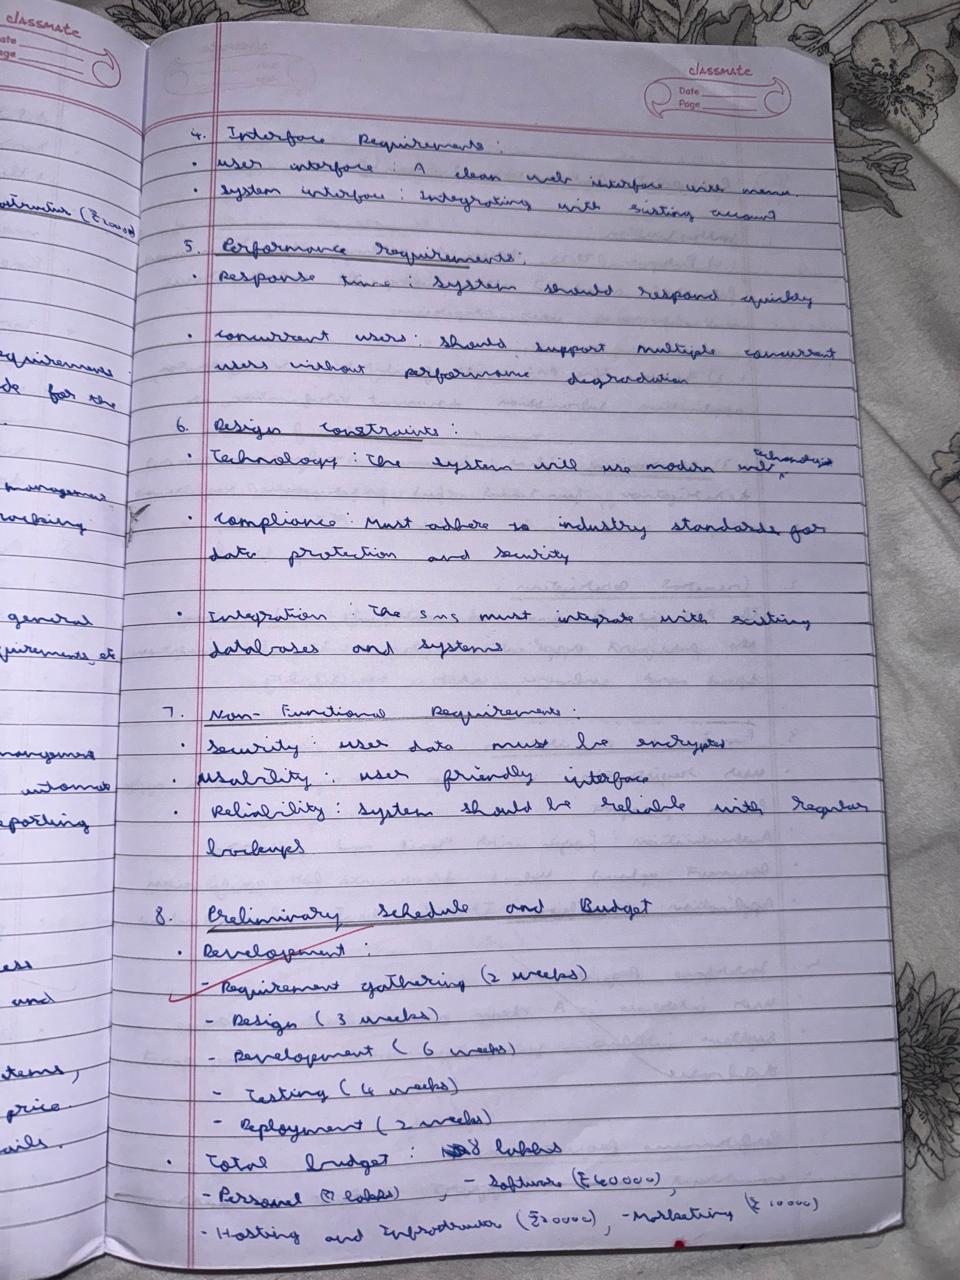 classmate
ate
age
structur (₹20000)
equirements
de for the
management
racking
general
quirements, etc
management
automate
eporting
ess
and
tems,
price.
ails.
classmate
Date
Page
4. Interface Requirements :
• user interface : A clean web interface with menu.
• system interface : Integrating with existing account
5. Performance requirements:
• Response time : system should respond quickly
• concurrent users : should support multiple concurrent
users without performance degradation
6. Design constraints :
• Technology : The system will use modern web
• compliance : Must adhere to industry standards for
data protection and security
• Integration : The sms must integrate with existing
databases and systems
7. Non-Functional Requirements :
• Security : user data must be encrypted
• Usability : user friendly interface
• Reliability : system should be reliable with regular
backups
8. Preliminary schedule and Budget
• Development :
- Requirement gathering (2 weeks)
- Design (3 weeks)
- Development (6 weeks)
- Testing (4 weeks)
- Deployment (2 weeks)
• Total budget : 8 lakhs
- Personel (7 lakhs) , - Software (₹40000),
- Hosting and Infrastructur (₹20000), - Marketing (₹10000)